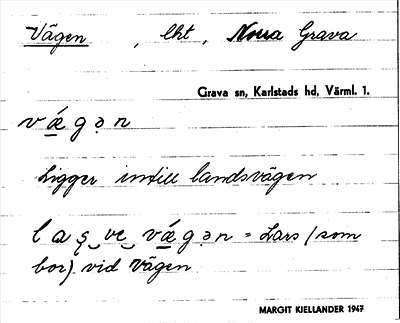 Vägen , lht, Norra Grava
Grava sn, Karlstads hd, Värml. 1.
vǽgən
Ligger intill landsvägen
las̨‿ve‿vǽgən = Lars (som
bor) vid Vägen.
MARGIT KJELLANDER 1947